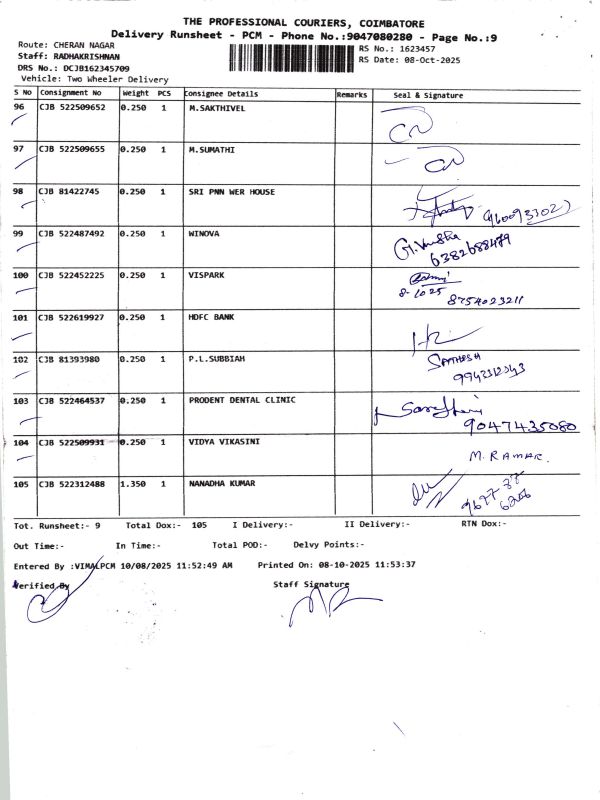 THE PROFESSIONAL COURIERS, COIMBATORE
Delivery Runsheet - PCM - Phone No.:9047080280 - Page No.:9
Route: CHERAN NAGAR
Staff: RADHAKRISHNAN
DRS No.: DCJB162345709
Vehicle: Two Wheeler Delivery
RS No.: 1623457
RS Date: 08-Oct-2025
S No Consignment No Weight PCS Consignee Details Remarks Seal & Signature
96 CJB 522509652 0.250 1 M.SAKTHIVEL
97 CJB 522509655 0.250 1 M.SUMATHI
98 CJB 81422745 0.250 1 SRI PNN WER HOUSE
99 CJB 522487492 0.250 1 WINOVA
6382688479
100 CJB 522452225 0.250 1 VISPARK
8-1025
8754023211
101 CJB 522619927 0.250 1 HDFC BANK
102 CJB 81393980 0.250 1 P.L.SUBBIAH
103 CJB 522464537 0.250 1 PRODENT DENTAL CLINIC
9047435080
104 CJB 522509931 0.250 1 VIDYA VIKASINI
M. RAMAR.
105 CJB 522312488 1.350 1 NANADHA KUMAR
Tot. Runsheet:- 9 Total Dox:- 105 I Delivery:- II Delivery:- RTN Dox:-
Out Time:- In Time:- Total POD:- Delvy Points:-
Entered By :VIMALPCM 10/08/2025 11:52:49 AM Printed On: 08-10-2025 11:53:37
Verified By Staff Signature